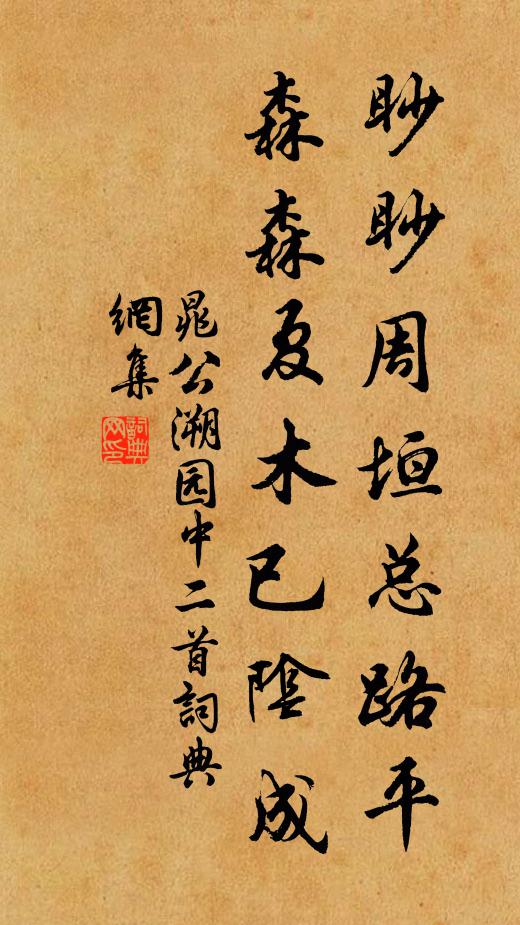 眇眇周垣总路平
森森夏木已陰成
晁公溯园中二首詞典
網集
詞典网印